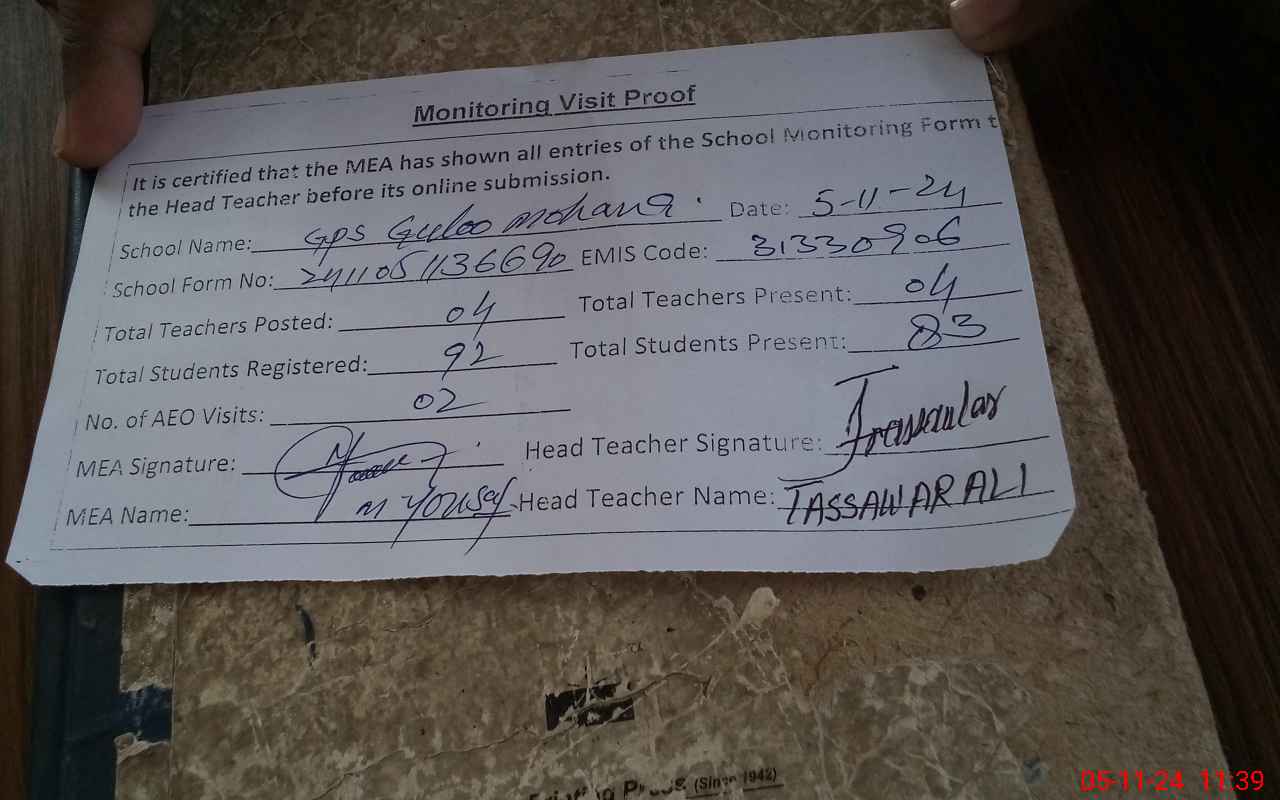 Monitoring Visit Proof
It is certified that the MEA has shown all entries of the School Monitoring Form t
the Head Teacher before its online submission.
School Name: GPS Guloo Mohana Date: 5-11-24
School Form No: 2411051136690 EMIS Code: 31330906
Total Teachers Posted: 04 Total Teachers Present: 04
Total Students Registered: 92 Total Students Present: 83
No. of AEO Visits: 02
MEA Signature: Head Teacher Signature:
MEA Name: M Yousaf Head Teacher Name: TASSAWAR ALI
(Since 1942)
05-11-24 11:39